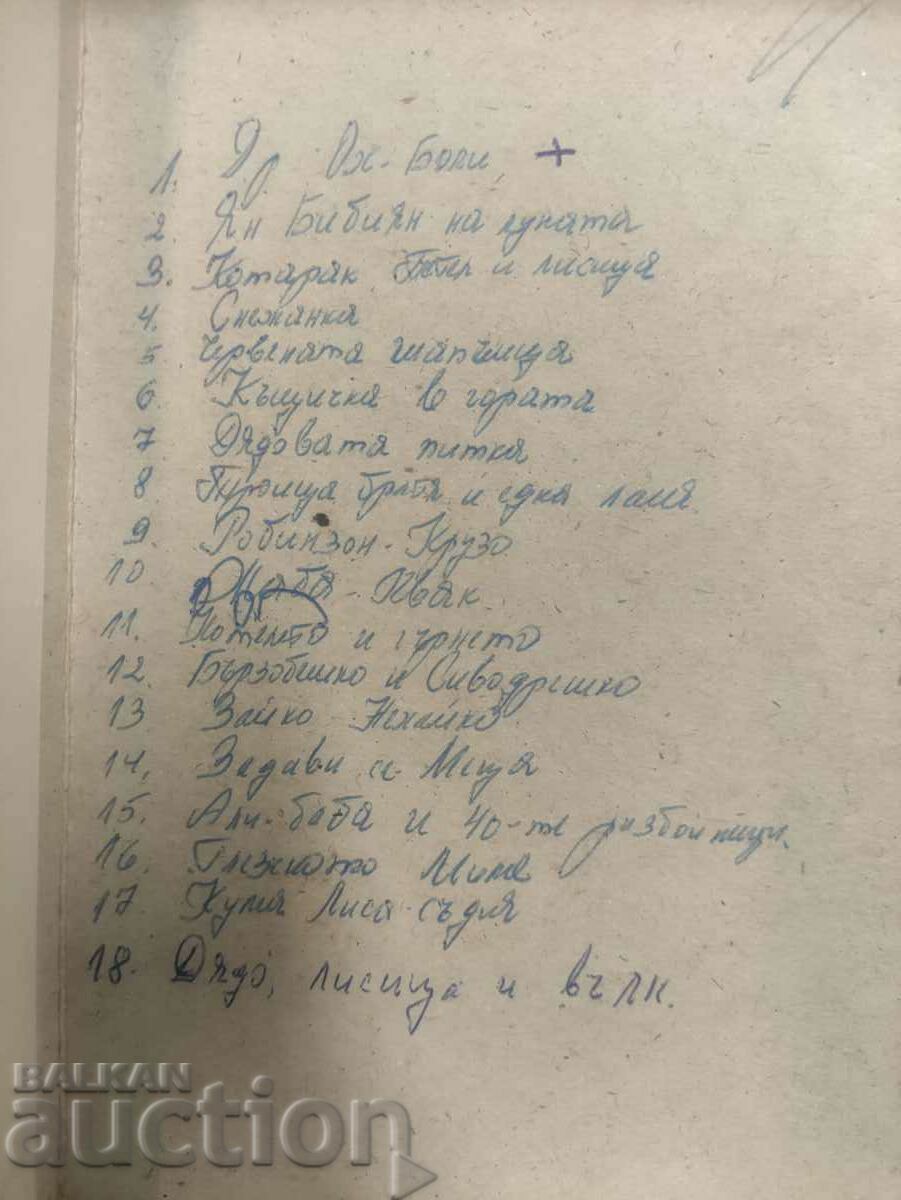 1. Др Ох-Боли +
2. Ян Бибиян на луната
3. Котарак, Петел и лисица
4. Снежанка
5 Червената шапчица
6. Къщичка в гората
7 Дядовата питка
8 братя и една ламя
9. Робинзон-Крузо
10 Жаба-Квак
11. Котлето и гърнето
12. Бързобежко и Сиводрешко
13 Зайко Нехайко
14. Задави се Меца
15. Али-баба и 40-те разбойници.
16. Глезеното Миме
17. Кума Лиса-съдия
18. Дядо, лисица и вълк.
BALKAN
auction